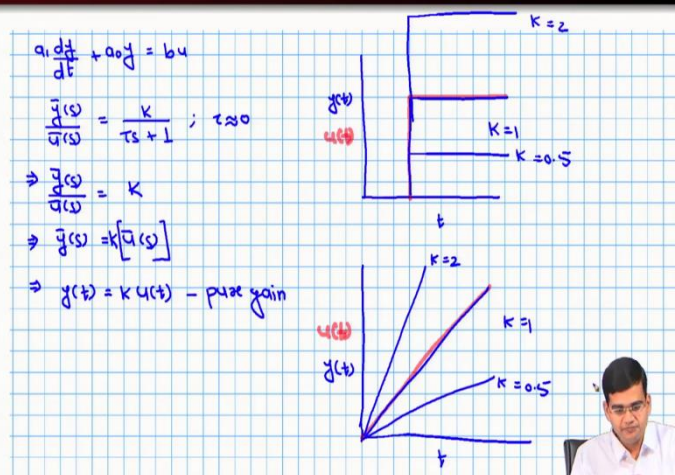 a₁ dy/dt + a₀y = bu
ȳ(s)/ū(s) = K/(τs + 1) ; τ≈0
⇒ ȳ(s)/ū(s) = K
⇒ ȳ(s) = K[ū(s)]
⇒ y(t) = K u(t) – pure gain
K = 2
y(t)
u(t)
K = 1
K = 0.5
t
K = 2
u(t)
K = 1
y(t)
K = 0.5
t